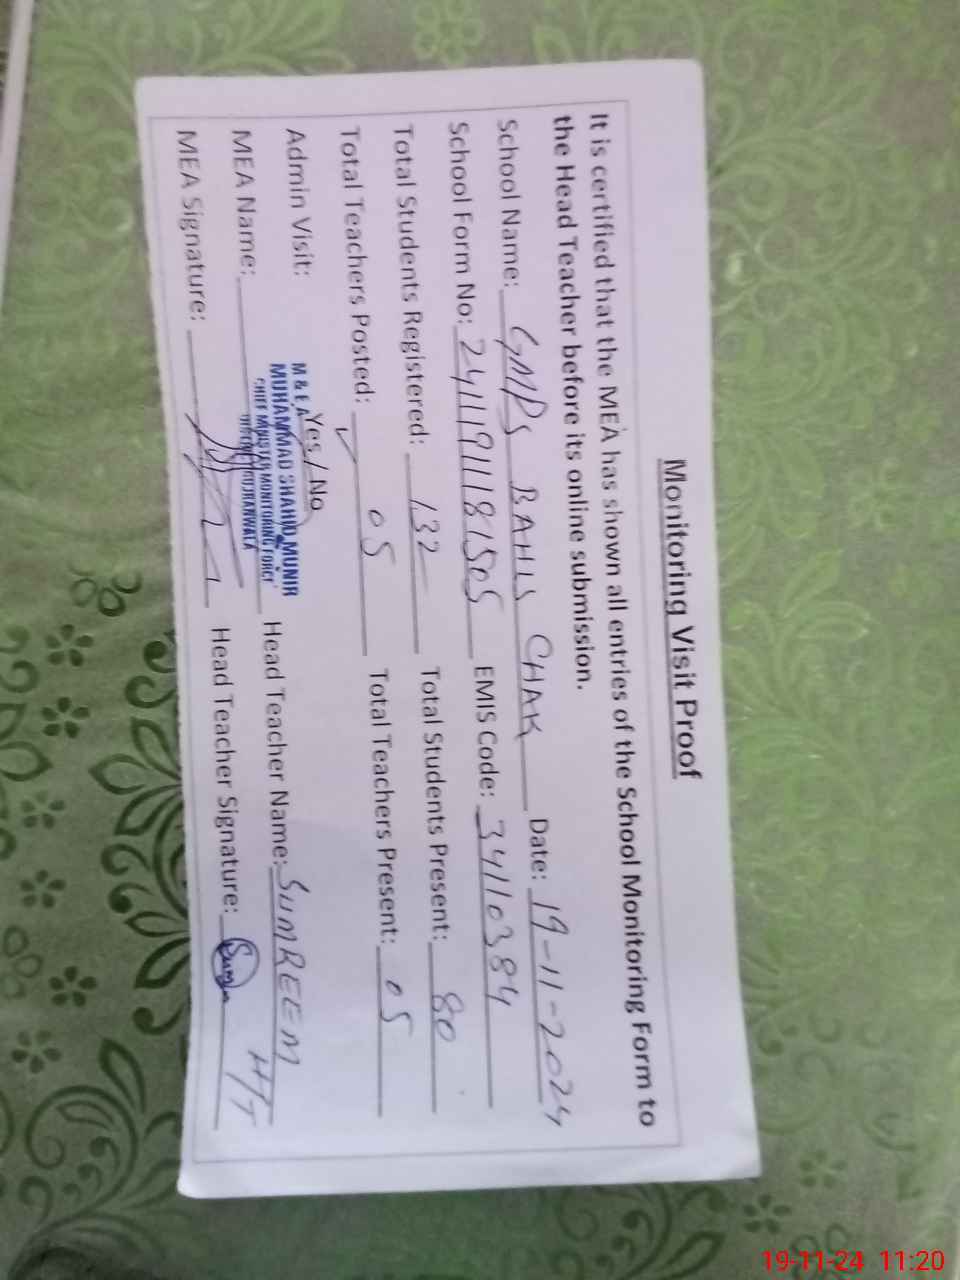 Monitoring Visit Proof
It is certified that the MEA has shown all entries of the School Monitoring Form to
the Head Teacher before its online submission.
School Name: GMPS BAHLS CHAK Date: 19-11-2024
School Form No: 24111911181505 EMIS Code: 34110384
Total Students Registered: 132 Total Students Present: 80
Total Teachers Posted: 05 Total Teachers Present: 05
Admin Visit: Yes / No
M & E A
MUHAMMAD SHAHID MUNIR
CHIEF MINISTER MONITORING FORCE
DISTRICT GUJRANWALA
MEA Name: Head Teacher Name: SUMREEM
HTJ
MEA Signature: Head Teacher Signature:
19-11-24 11:20